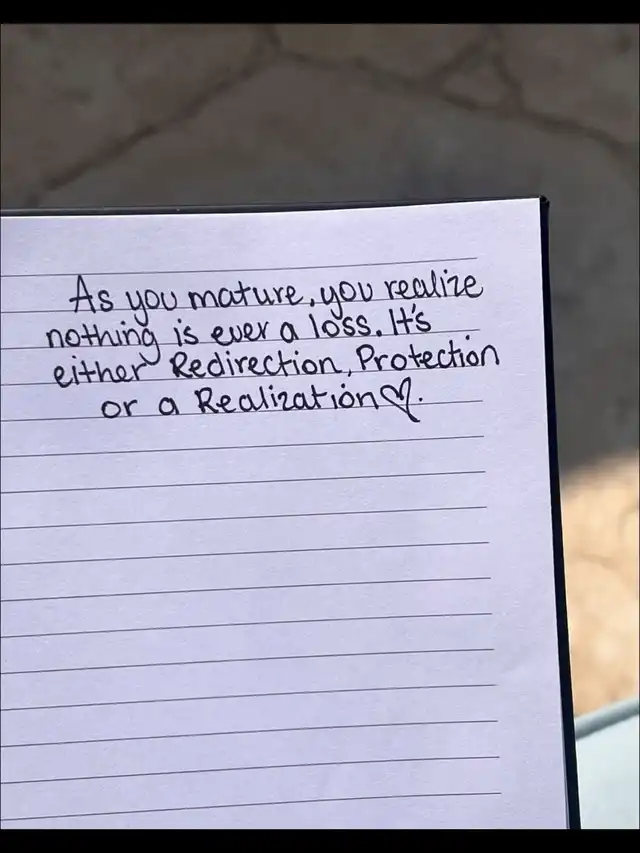 As you mature, you realize
nothing is ever a loss. It's
either Redirection, Protection
or a Realization♡.